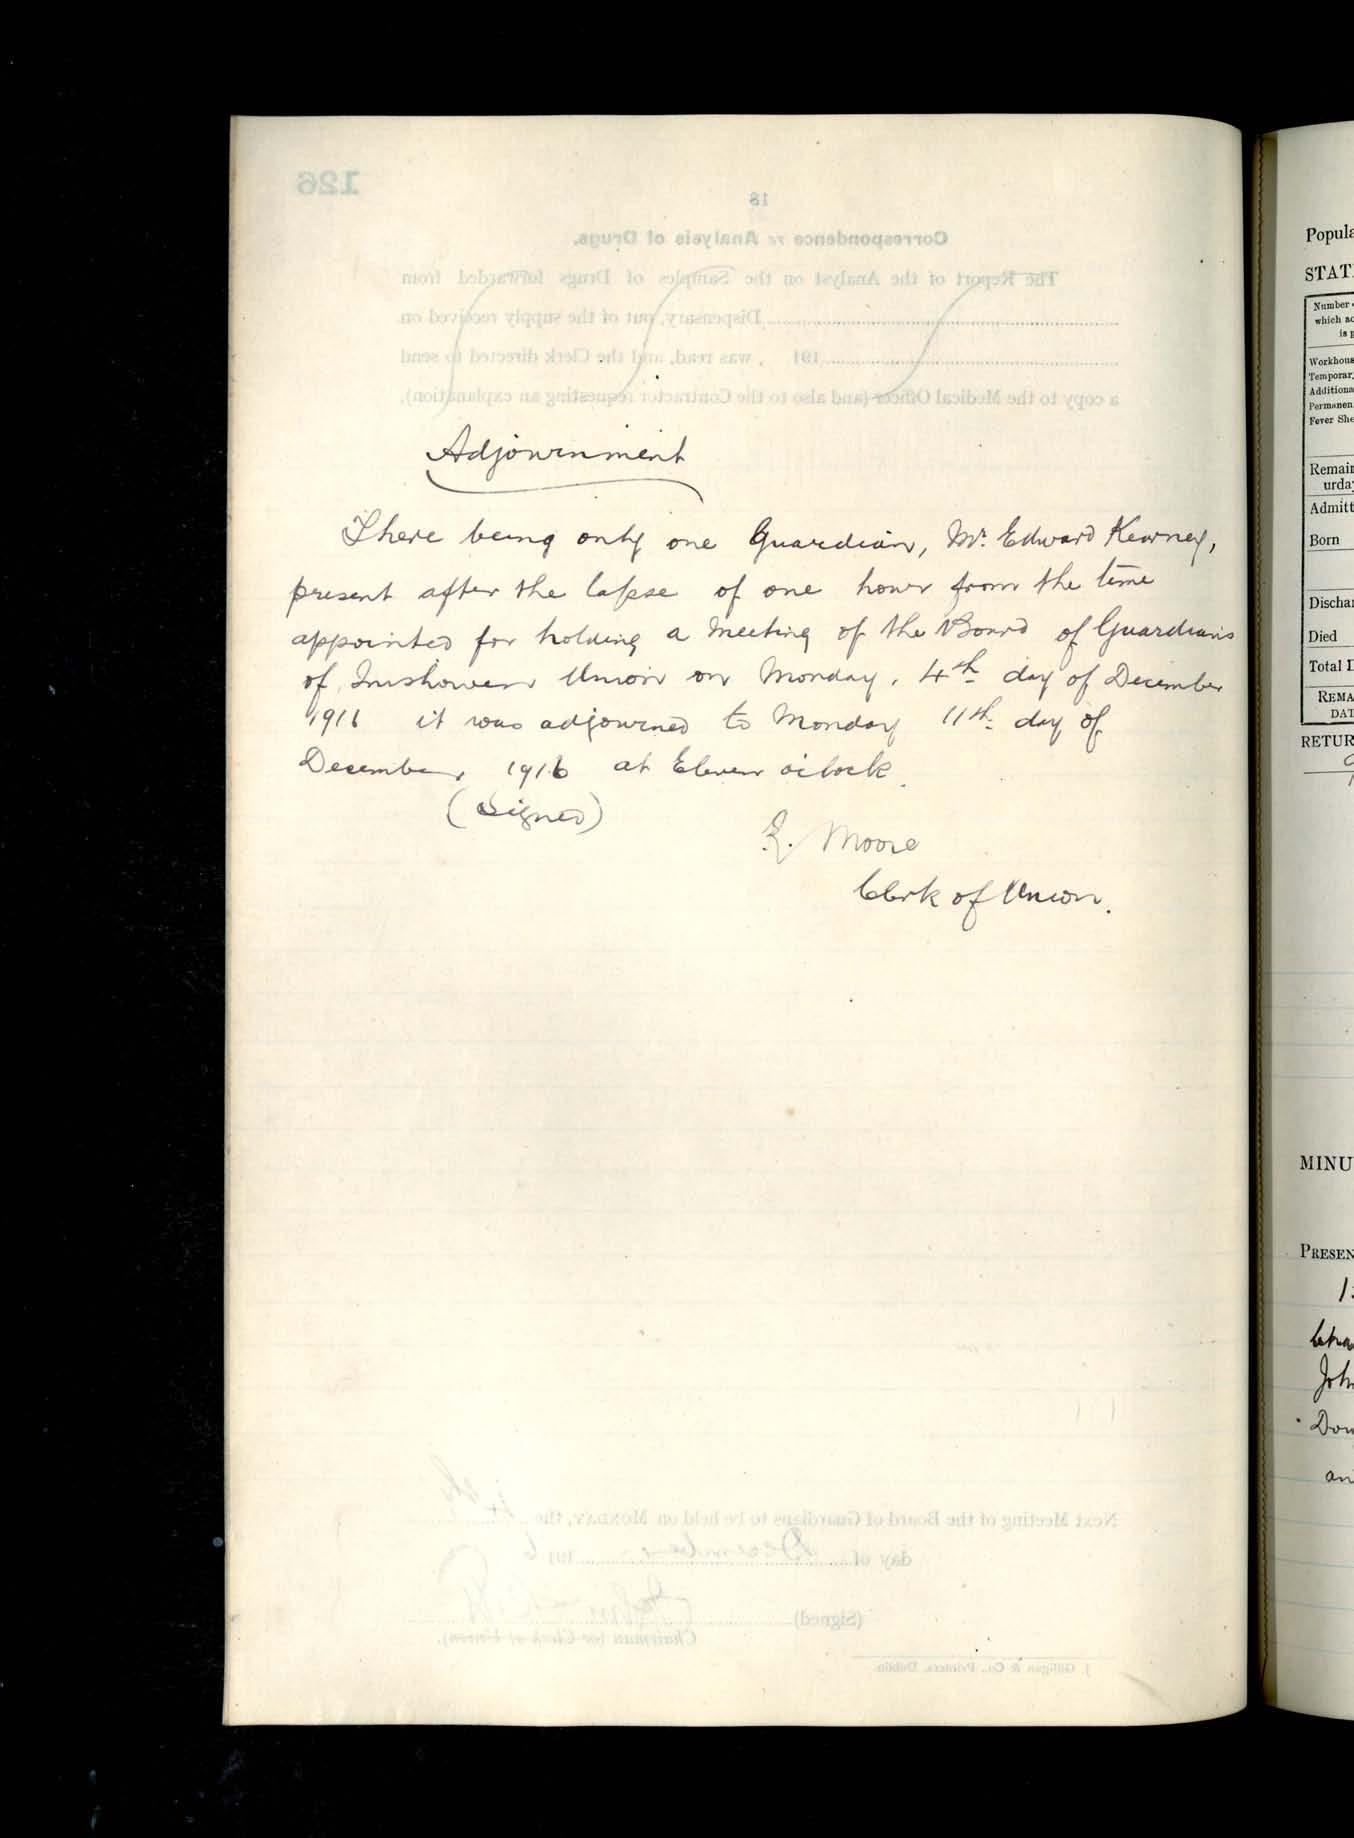 Adjournment
There being only one Guardian, Mr. Edward Kearney,
present after the lapse of one hour from the time
appointed for holding a Meeting of the Board of Guardians
of Inishowen Union on Monday, 4th day of December
1916 it was adjourned to Monday 11th day of
December, 1916 at Eleven o'clock.
(Signed)
Moore
Clerk of Union.
126
18
Correspondence re Analysis of Drugs.
The Report of the Analyst on the Samples of Drugs forwarded from
Dispensary, out of the supply received on
191 , was read, and the Clerk directed to send
a copy to the Medical Officer (and also to the Contractor requesting an explanation).
Next Meeting of the Board of Guardians to be held on MONDAY, the 4th
day of December 1916
(Signed)
Chairman (or Clerk of Union).
J. Gilligan & Co., Printers, Dublin.
Popula
STAT
Number
which ac
is p
Workhous
Temporar
Additiona
Permanen
Fever She
Remain
urday
Admitt
Born
Dischar
Died
Total D
REMA
DAT
RETUR
MINU
PRESEN
Joh
an